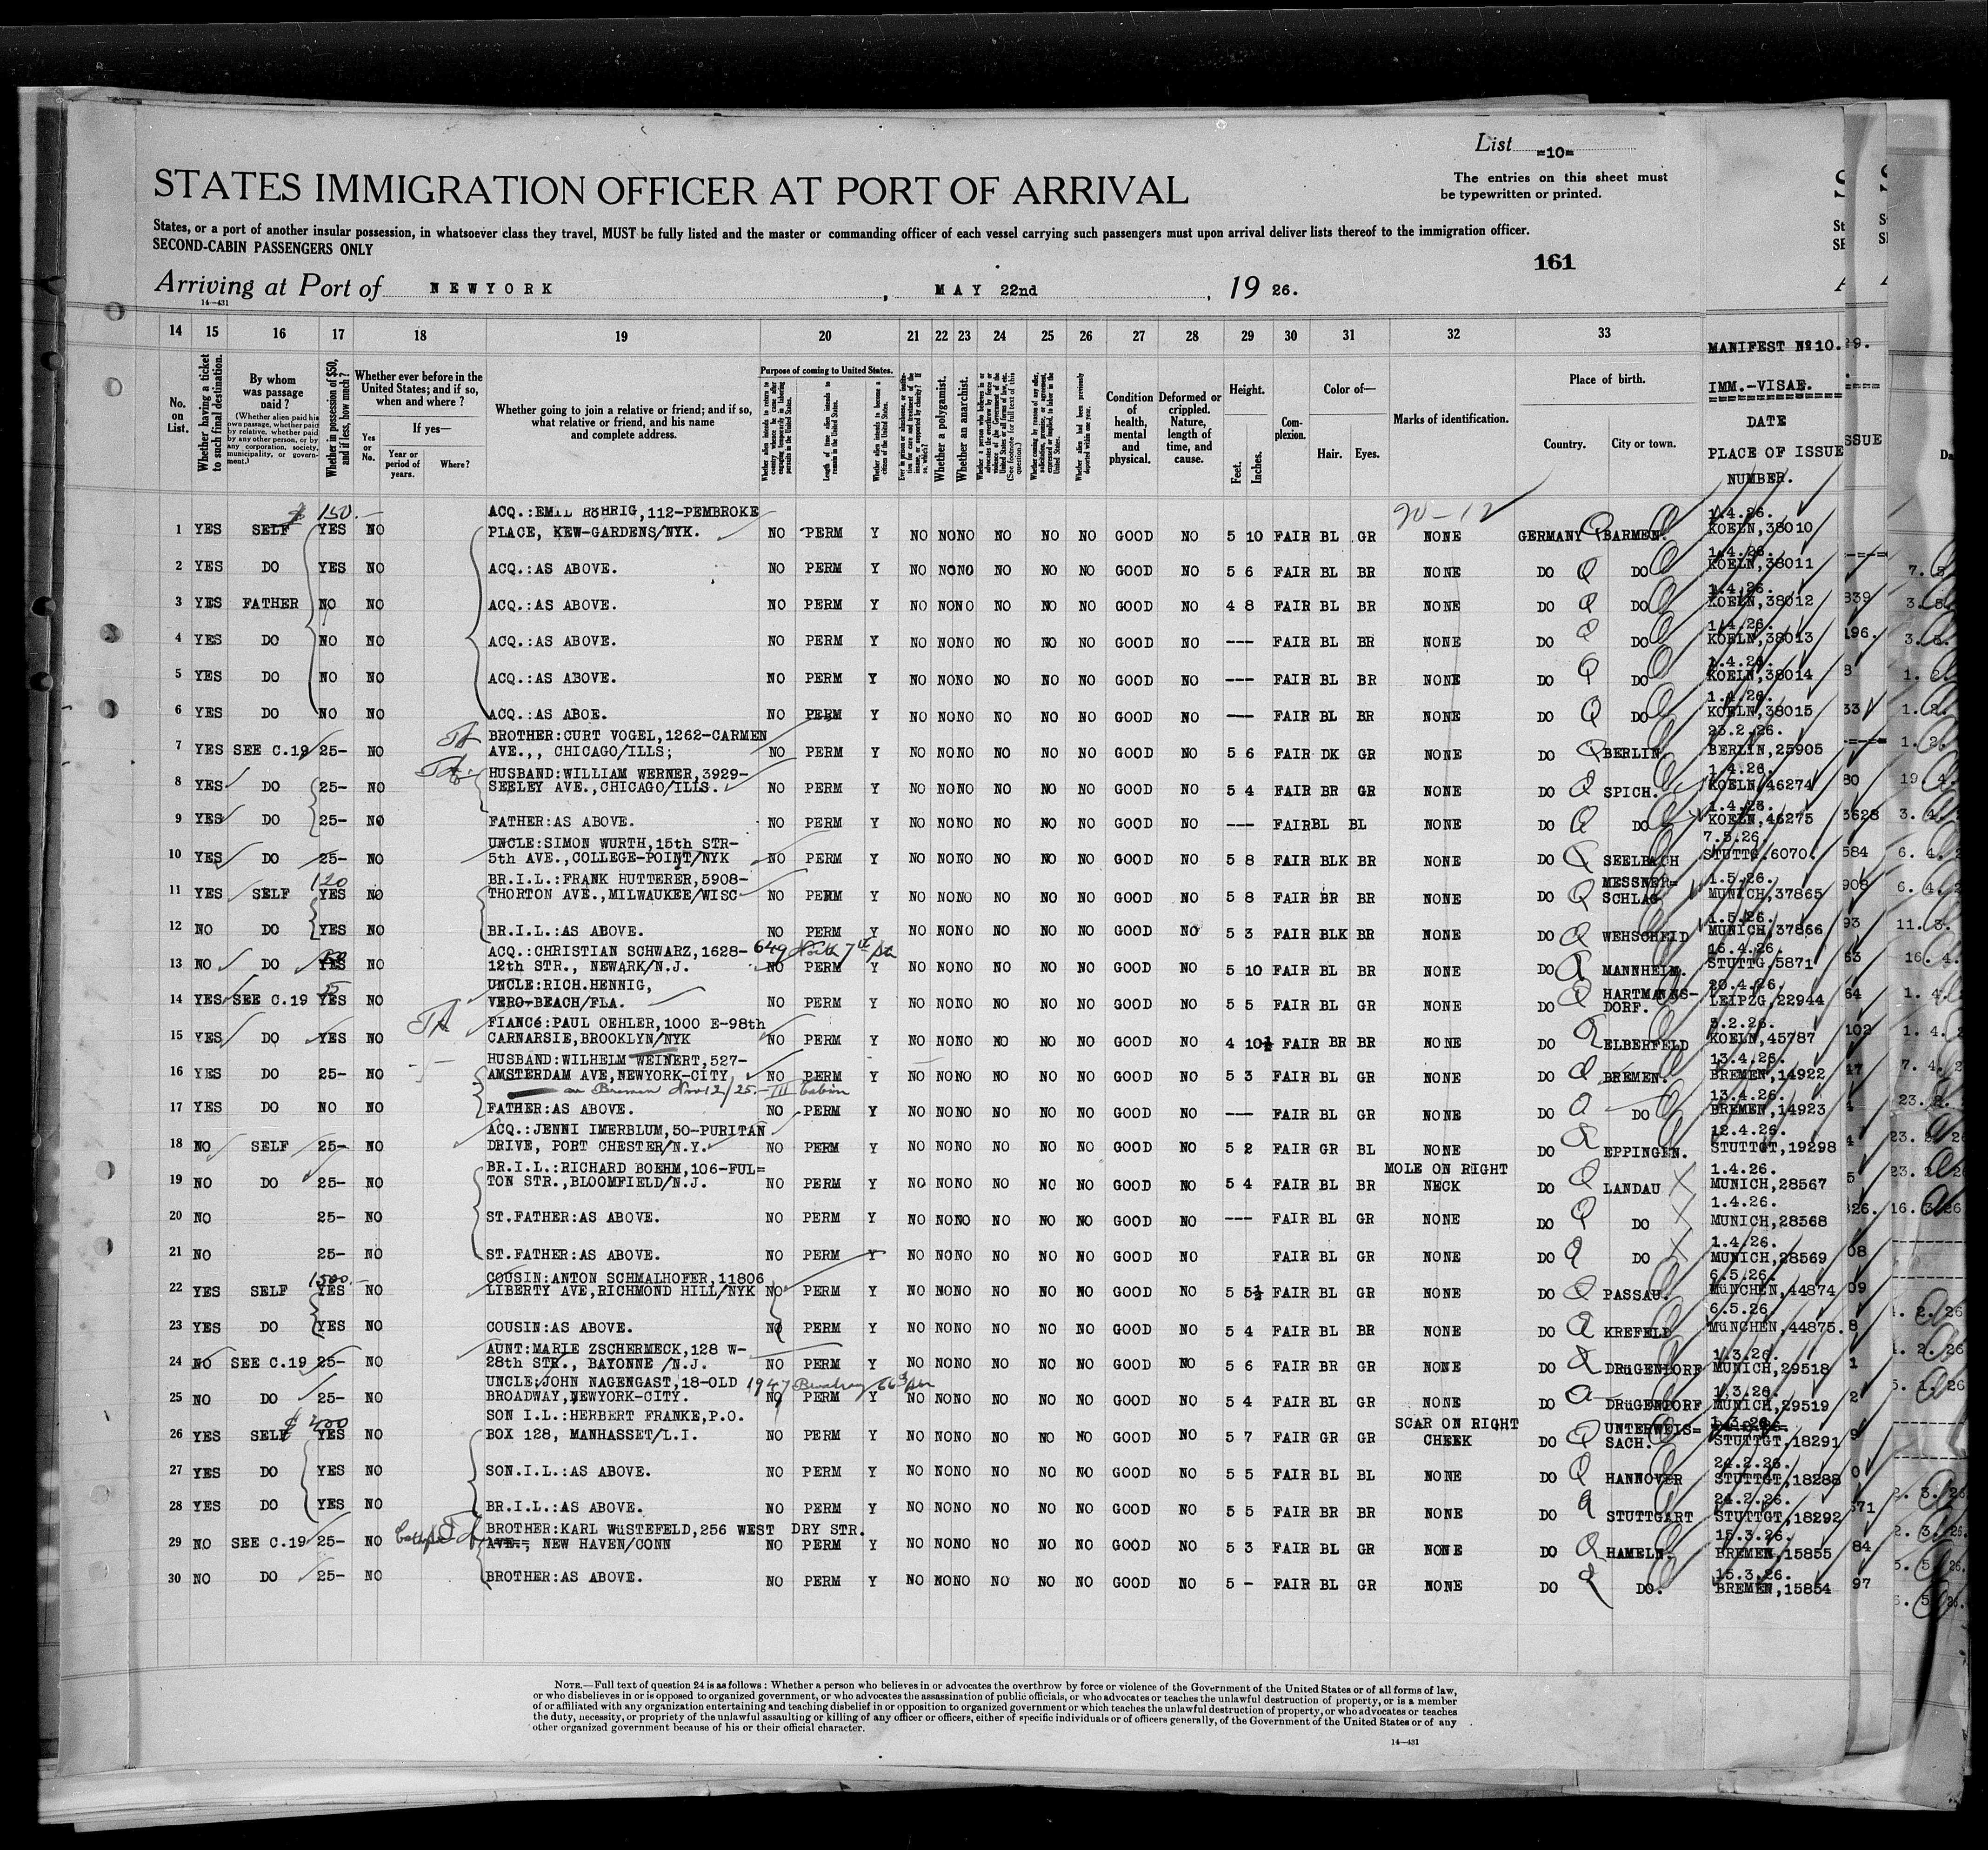 List =10=
The entries on this sheet must
be typewritten or printed.
STATES IMMIGRATION OFFICER AT PORT OF ARRIVAL
States, or a port of another insular possession, in whatsoever class they travel, MUST be fully listed and the master or commanding officer of each vessel carrying such passengers must upon arrival deliver lists thereof to the immigration officer.
SECOND-CABIN PASSENGERS ONLY
161
Arriving at Port of NEWYORK, MAY 22nd, 19 26.
14—431
14 15 16 17 18 19 20 21 22 23 24 25 26 27 28 29 30 31 32 33
MANIFEST No 10.
IMM.-VISAE.
DATE
PLACE OF ISSUE
NUMBER.
No. on List.
Whether having a ticket to such final destination.
By whom was passage paid?
(Whether alien paid his own passage, whether paid by relative, whether paid by any other person, or by any corporation, society, municipality, or government.)
Whether in possession of $50, and if less, how much?
Whether ever before in the United States; and if so, when and where?
Yes or No.
If yes—
Year or period of years.
Where?
Whether going to join a relative or friend; and if so, what relative or friend, and his name and complete address.
Purpose of coming to United States.
Whether alien intends to return to country whence he came after engaging temporarily in laboring pursuits in the United States.
Length of time alien intends to remain in the United States.
Whether alien intends to become a citizen of the United States.
Whether a polygamist.
Whether an anarchist.
Condition of health, mental and physical.
Deformed or crippled. Nature, length of time, and cause.
Height.
Feet. Inches.
Complexion.
Color of—
Hair. Eyes.
Marks of identification.
Place of birth.
Country. City or town.
$ 150.— ACQ.:EMIL RöHRIG,112-PEMBROKE 90-12 1.4.26.
1 YES SELF YES NO PLACE, KEW-GARDENS/NYK. NO PERM Y NO NO NO NO NO NO GOOD NO 5 10 FAIR BL GR NONE GERMANY BARMEN. KOELN,38010
1.4.26.
2 YES DO YES NO ACQ.:AS ABOVE. NO PERM Y NO NO NO NO NO NO GOOD NO 5 6 FAIR BL BR NONE DO DO KOELN,38011
1.4.26.
3 YES FATHER NO NO ACQ.:AS ABOVE. NO PERM Y NO NO NO NO NO NO GOOD NO 4 8 FAIR BL BR NONE DO DO KOELN,38012
1.4.26.
4 YES DO NO NO ACQ.:AS ABOVE. NO PERM Y NO NO NO NO NO NO GOOD NO --- FAIR BL BR NONE DO DO KOELN,38013
1.4.26.
5 YES DO NO NO ACQ.:AS ABOVE. NO PERM Y NO NO NO NO NO NO GOOD NO --- FAIR BL BR NONE DO DO KOELN,38014
1.4.26.
6 YES DO NO NO ACQ.:AS ABOE. NO PERM Y NO NO NO NO NO NO GOOD NO --- FAIR BL BR NONE DO DO KOELN,38015
BROTHER:CURT VOGEL,1262-CARMEN 23.2.26.
7 YES SEE C.19 25- NO AVE.,, CHICAGO/ILLS; NO PERM Y NO NO NO NO NO NO GOOD NO 5 6 FAIR DK GR NONE DO BERLIN. BERLIN,25905
HUSBAND:WILLIAM WERNER,3929- 1.4.26.
8 YES DO 25- NO SEELEY AVE.,CHICAGO/ILLS. NO PERM Y NO NO NO NO NO NO GOOD NO 5 4 FAIR BR GR NONE DO SPICH. KOELN,46274
1.4.26.
9 YES DO 25- NO FATHER:AS ABOVE. NO PERM Y NO NO NO NO NO NO GOOD NO --- FAIR BL BL NONE DO DO KOELN,46275
UNCLE:SIMON WURTH,15th STR- 7.5.26.
10 YES DO 25- NO 5th AVE.,COLLEGE-POINT/NYK NO PERM Y NO NO NO NO NO NO GOOD NO 5 8 FAIR BLK BR NONE DO SEELBACH STUTTG.6070.
120 BR.I.L.:FRANK HUTTERER,5908- MESSNER= 1.5.26.
11 YES SELF YES NO THORTON AVE.,MILWAUKEE/WISC NO PERM Y NO NO NO NO NO NO GOOD NO 5 8 FAIR BR BR NONE DO SCHLAG MUNICH,37865
1.5.26.
12 NO DO YES NO BR.I.L.:AS ABOVE. NO PERM Y NO NO NO NO NO NO GOOD NO 5 3 FAIR BLK BR NONE DO WEHSCHEID MUNICH,37866
ACQ.:CHRISTIAN SCHWARZ,1628- 649 North 7th Str 16.4.26.
13 NO DO YES NO 12th STR., NEWARK/N.J. NO PERM Y NO NO NO NO NO NO GOOD NO 5 10 FAIR BL BR NONE DO MANNHEIM. STUTTG,5871
25 UNCLE:RICH.HENNIG, HARTMANNS- 20.4.26.
14 YES SEE C.19 YES NO VERO-BEACH/FLA. NO PERM Y NO NO NO NO NO NO GOOD NO 5 5 FAIR BL GR NONE DO DORF. LEIPZG,22944
FIANCé:PAUL OEHLER,1000 E-98th 3.2.26.
15 YES DO YES NO CARNARSIE,BROOKLYN/NYK NO PERM Y NO NO NO NO NO NO GOOD NO 4 10½ FAIR BR BR NONE DO ELBERFELD KOELN,45787
HUSBAND:WILHELM WEINERT,527- 13.4.26.
16 YES DO 25- NO AMSTERDAM AVE,NEWYORK-CITY NO PERM Y NO NO NO NO NO NO GOOD NO 5 3 FAIR BL GR NONE DO BREMEN. BREMEN,14922
on Bremen Nov 12/25.— III Cabin 13.4.26.
17 YES DO NO NO FATHER:AS ABOVE. NO PERM Y NO NO NO NO NO NO GOOD NO --- FAIR BL GR NONE DO DO BREMEN,14923
ACQ.:JENNI IMERBLUM,50-PURITAN 12.4.26.
18 NO SELF 25- NO DRIVE, PORT CHESTER/N.Y. NO PERM Y NO NO NO NO NO NO GOOD NO 5 2 FAIR GR BL NONE DO EPPINGEN. STUTTGT,19298
BR.I.L.:RICHARD BOEHM,106-FUL= MOLE ON RIGHT 1.4.26.
19 NO DO 25- NO TON STR.,BLOOMFIELD/N.J. NO PERM Y NO NO NO NO NO NO GOOD NO 5 4 FAIR BL BR NECK DO LANDAU MUNICH,28567
1.4.26.
20 NO 25- NO ST.FATHER:AS ABOVE. NO PERM Y NO NO NO NO NO NO GOOD NO --- FAIR BL GR NONE DO DO MUNICH,28568
1.4.26.
21 NO 25- NO ST.FATHER:AS ABOVE. NO PERM Y NO NO NO NO NO NO GOOD NO FAIR BL GR NONE DO DO MUNICH,28569
1500.— COUSIN:ANTON SCHMALHOFER,11806 6.5.26.
22 YES SELF YES NO LIBERTY AVE,RICHMOND HILL/NYK NO PERM Y NO NO NO NO NO NO GOOD NO 5 5½ FAIR BL GR NONE DO PASSAU. MüNCHEN,44874
6.5.26.
23 YES DO YES NO COUSIN:AS ABOVE. NO PERM Y NO NO NO NO NO NO GOOD NO 5 4 FAIR BL BR NONE DO KREFELD MüNCHEN,44875.
AUNT:MARIE ZSCHERMECK,128 W- 1.3.26.
24 NO SEE C.19 25- NO 28th STR., BAYONNE /N.J. NO PERM Y NO NO NO NO NO NO GOOD NO 5 6 FAIR BR GR NONE DO DRüGENDORF MUNICH,29518
UNCLE:JOHN NAGENGAST,18-OLD 1947 Broadway 66 Str 1.3.26.
25 NO DO 25- NO BROADWAY,NEWYORK-CITY. NO PERM Y NO NO NO NO NO NO GOOD NO 5 4 FAIR BL GR NONE DO DRüGENDORF MUNICH,29519
$ 400 SON I.L.:HERBERT FRANKE,P.O. SCAR ON RIGHT UNTERWEIS= 1.3.26.
26 YES SELF YES NO BOX 128, MANHASSET/L.I. NO PERM Y NO NO NO NO NO NO GOOD NO 5 7 FAIR GR GR CHEEK DO SACH. STUTTGT,18291
24.2.26.
27 YES DO YES NO SON.I.L.:AS ABOVE. NO PERM Y NO NO NO NO NO NO GOOD NO 5 5 FAIR BL BL NONE DO HANNOVER STUTTGT,18288
24.2.26.
28 YES DO YES NO BR.I.L.:AS ABOVE. NO PERM Y NO NO NO NO NO NO GOOD NO 5 5 FAIR BR BR NONE DO STUTTGART STUTTGT,18292
BROTHER:KARL WüSTEFELD,256 WEST DRY STR. 15.3.26.
29 NO SEE C.19 25- NO AVE., NEW HAVEN/CONN NO PERM Y NO NO NO NO NO NO GOOD NO 5 3 FAIR BL GR NONE DO HAMELN. BREMEN,15855
15.3.26.
30 NO DO 25- NO BROTHER:AS ABOVE. NO PERM Y NO NO NO NO NO NO GOOD NO 5 - FAIR BL GR NONE DO DO. BREMEN,15854
NOTE.—Full text of question 24 is as follows: Whether a person who believes in or advocates the overthrow by force or violence of the Government of the United States or of all forms of law,
or who disbelieves in or is opposed to organized government, or who advocates the assassination of public officials, or who advocates or teaches the unlawful destruction of property, or is a member
of or affiliated with any organization entertaining and teaching disbelief in or opposition to organized government or which teaches the unlawful destruction of property, or who advocates or teaches
the duty, necessity, or propriety of the unlawful assaulting or killing of any officer or officers, either of specific individuals or of officers generally, of the Government of the United States or of any
other organized government because of his or their official character.
14—431